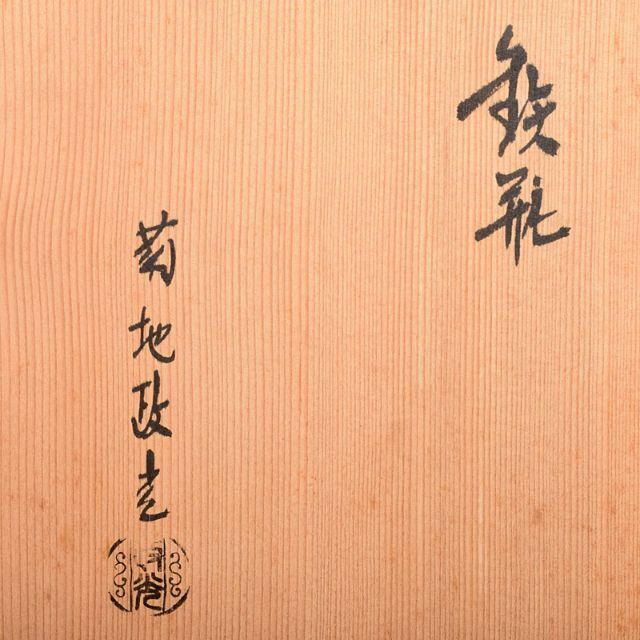 鉄瓶
菊地政光